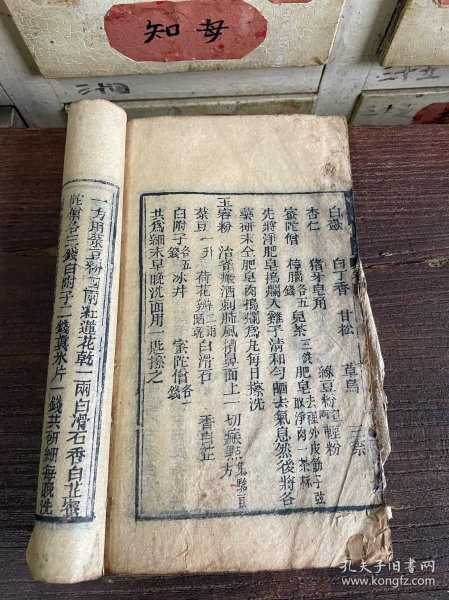 知母
白蘞 白丁香 甘松 草烏 三柰
杏仁 猪牙皂角 綠豆粉 輕粉
蜜陀僧 樟腦各五錢 兒茶三錢 肥皂去裡外皮筋子弦取淨肉一茶
先將淨肥皂搗爛入雞子清和勻晒去氣息然後將各
藥研末仝肥皂肉搗爛爲丸每日擦洗
玉容粉 治雀癍酒刺肺風情鼻面上一切癍點方
菉豆一升 荷花瓣二兩晒乾 白滑石 香白芷
白附子各五錢 冰片 蜜陀僧各二錢
共爲細末早晚洗面用此擦之
一方用菉豆粉 兩 紅蓮花乾一兩白滑石香白芷蜜
陀僧各三錢白附子二錢真冰片一錢共研細每晚洗
孔夫子旧书网
www.kongfz.com